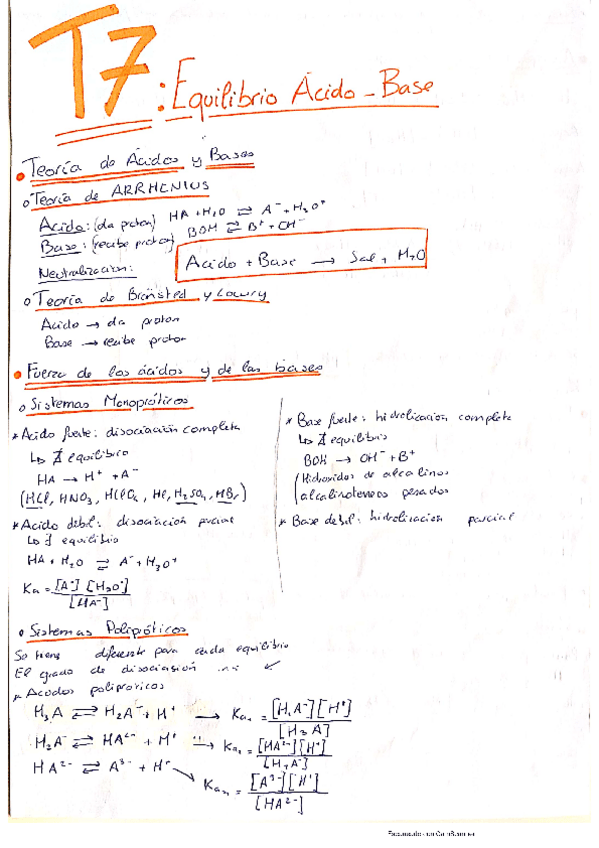 T7: Equilibrio Ácido-Base
Teoría de Ácidos y Bases
Teoría de ARRHENIUS
Acido: (da proton) HA + H2O ⇄ A⁻ + H3O⁺
Base: (recibe proton) BOH ⇄ B⁺ + OH⁻
Neutralizacion: Acido + Base → Sal + H2O
Teoría de Brönsted y Lowry
Acido → da proton
Base → recibe proton
Fuerza de los ácidos y de las bases
Sistemas Monopróticos
* Acido fuerte: disociación completa
↳ ∄ equilibrio
HA → H⁺ + A⁻
(HCl, HNO3, HClO4, HI, H2SO4, HBr)
* Acido debil: disociación parcial
↳ ∃ equilibrio
HA + H2O ⇄ A⁻ + H3O⁺
Ka = [A⁻] [H3O⁺]
[HA⁻]
* Base fuerte: hidrolizacion completa
↳ ∄ equilibrio
BOH → OH⁻ + B⁺
(Hidroxidos de alcalinos
(alcalinoterreos pesados
* Base debil: hidrolizacion parcial
Sistemas Polipróticos
diferente para cada equilibrio
El grado de disociasión
* Acodos poliproticos
H3A ⇄ H2A⁻ + H⁺ → Ka₁ = [H2A⁻][H⁺]
[H3A]
H2A⁻ ⇄ HA²⁻ + H⁺ → Ka₂ = [HA²⁻][H⁺]
[H2A⁻]
HA²⁻ ⇄ A³⁻ + H⁺ → Ka = [A³⁻][H⁺]
[HA²⁻]
Escaneado con CamScanner